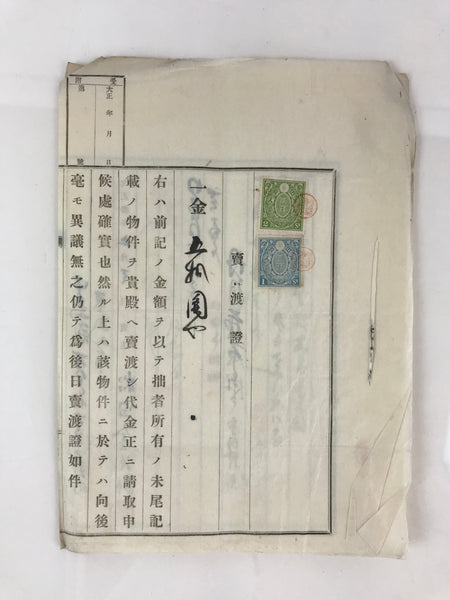 賣渡證
一金五拾圓也
右ハ前記ノ金額ヲ以テ拙者所有ノ末尾記
載ノ物件ヲ貴殿ヘ賣渡シ代金正ニ請取申
候處確實也然ル上ハ該物件ニ於テハ向後
毫モ異議無之仍テ爲後日賣渡證如件
受附
大正 年 月 日
第 號
2 S
1 S